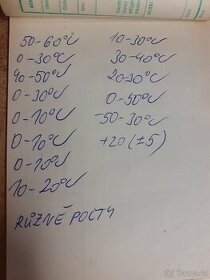 50-60°C
0-30°C
40-50°C
0-30°C
0-10°C
0-10°C
0-10°C
10-20°C
10-30°C
30-40°C
20-30°C
0-50°C
-50-30°C
+20 (±5)
RŮZNÉ POČTY